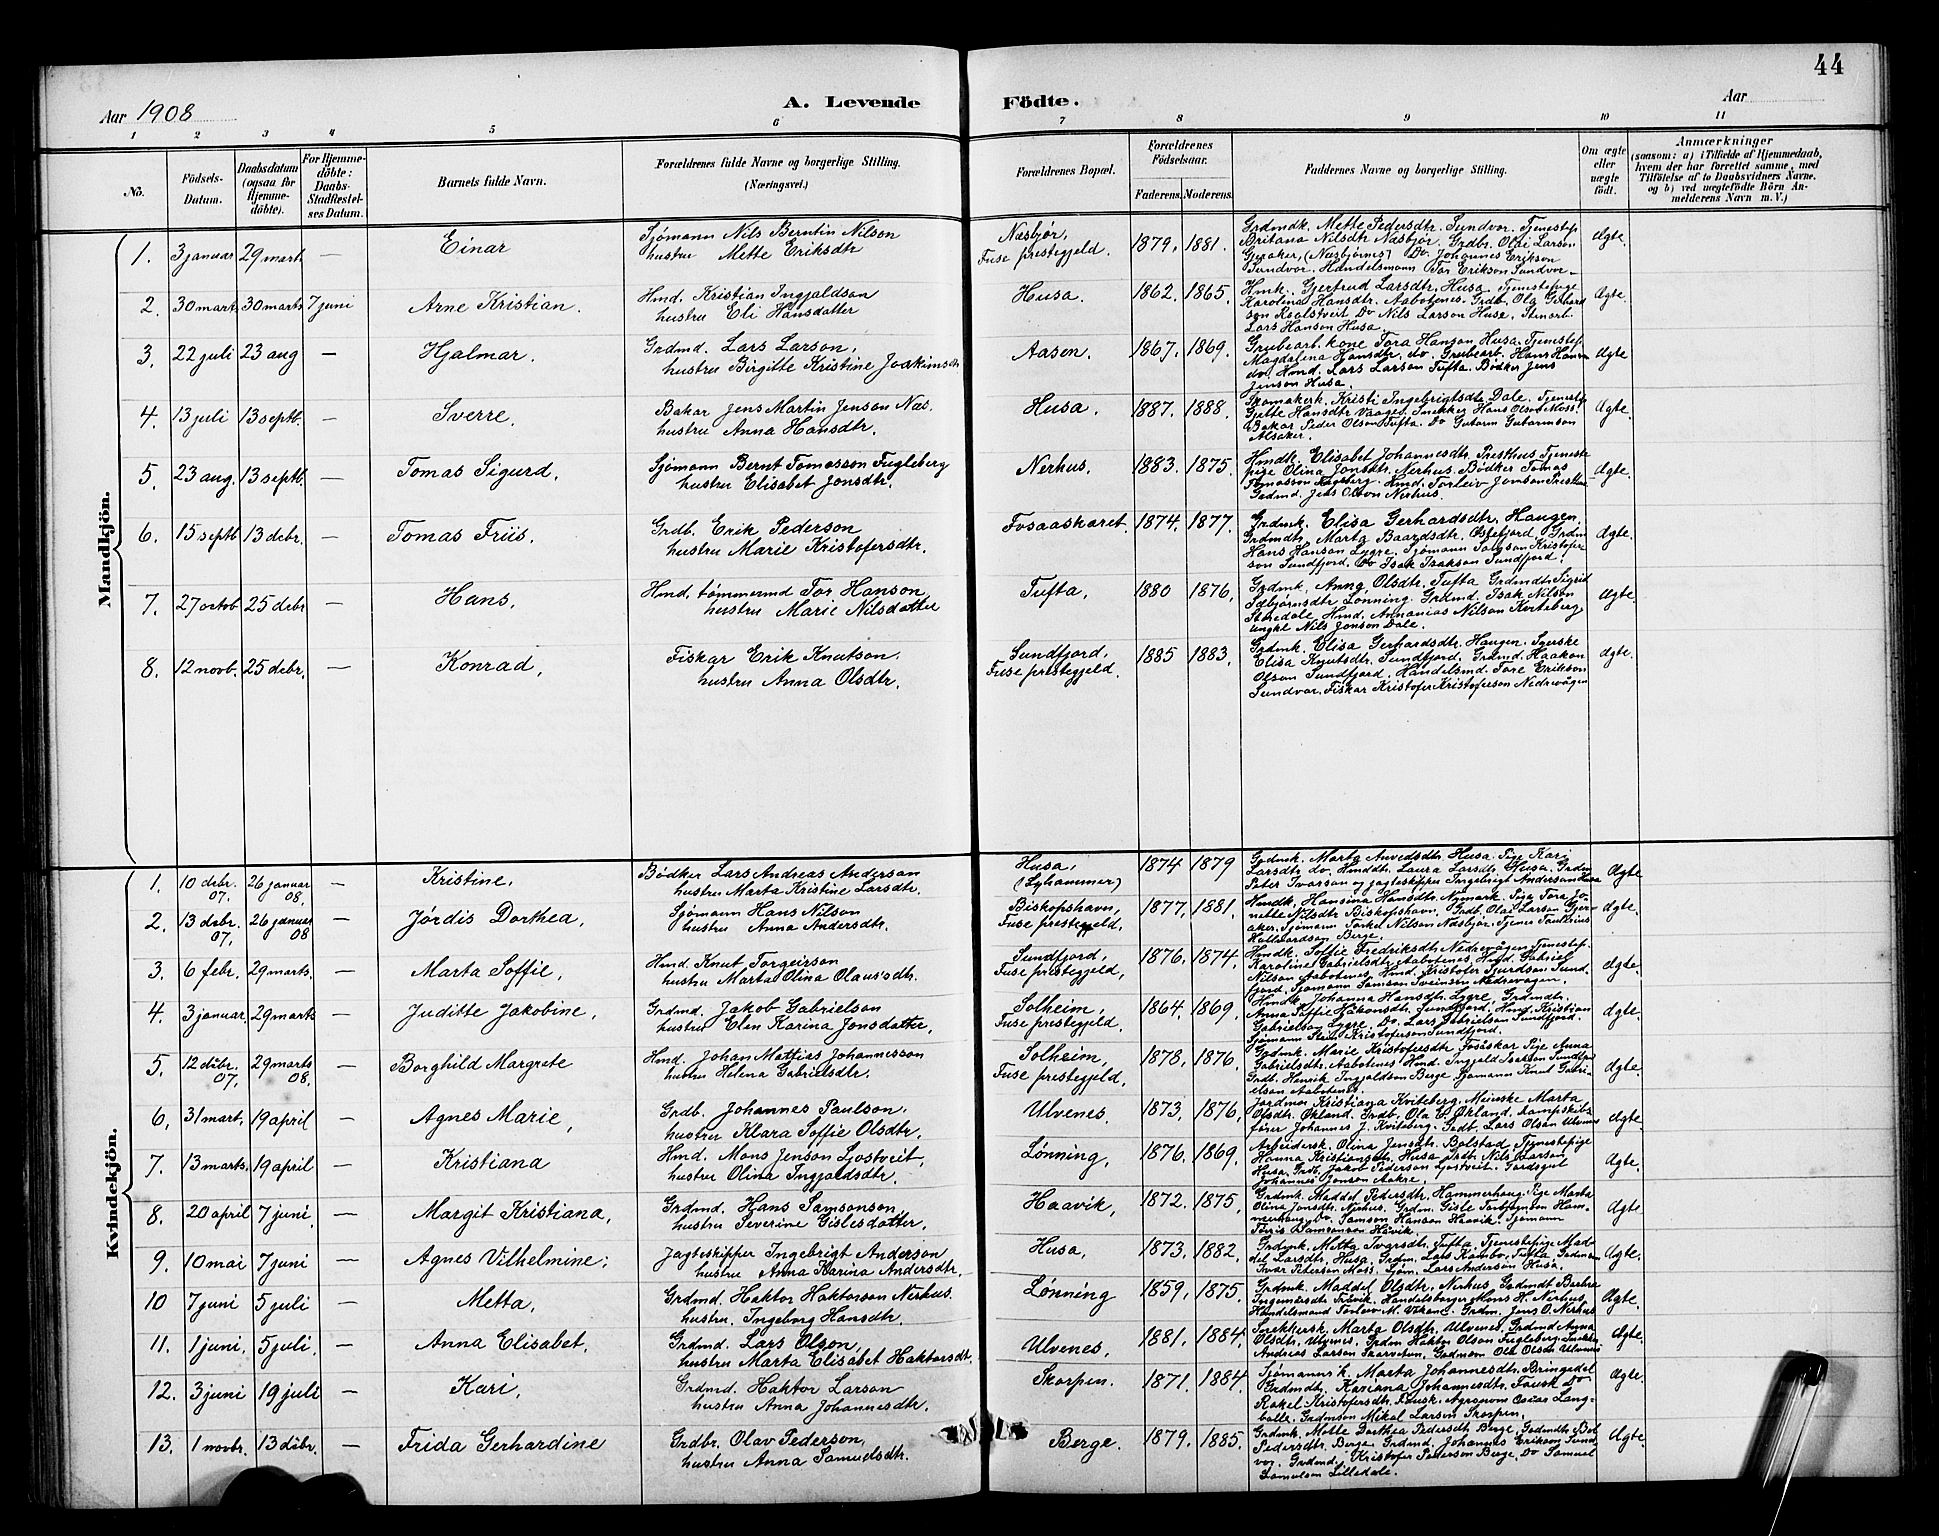 44
Aar 1908
A. Levende Födte.
Aar
1 2 3 4 5 6 7 8 9 10 11
No.
Födsels-Datum.
Daabsdatum (ogsaa for Hjemmedöbte).
For Hjemmedöbte: Daabs-Stadfæstelses Datum.
Barnets fulde Navn.
Forældrenes fulde Navne og borgerlige Stilling.
(Næringsvei.)
Forældrenes Bopæl.
Forældrenes Födselsaar.
Faderens. Moderens.
Faddernes Navne og borgerlige Stilling.
Om ægte eller uægte født.
Anmærkninger
(saasom: a) i Tilfælde af Hjemmedaab, hvem der har forrettet samme, med Tilföielse af to Daabsvidners Navne, og b) ved uægtefödte Börn Anmelderens Navn m. V.)
Mandkjön.
1. 3 januar 29 marts — Einar Sjømann Nils Berntin Nilson
hustru Mette Eriksdtr
Næsbjør, Fuse prestegjeld. 1879, 1881.
Grdmdk. Mette Pedersdtr. Sundvor. Tjenestep.
Britana Nilsdtr Næsbjør. Grdbr. Olai Larson
Gjeraker, (Næsbjørnes) Do Johannes Erikson
Sundvor. Handelsmann Tor Erikson Sundvor
Ægte.
2. 30 mart. 30 marts 7 juni Arne Kristian. Hmd. Kristian Ingjaldson
hustru Eli Hansdatter
Husa. 1862, 1865.
Hmk. Gjertrud Larsdtr. Husa Tjenestepige
Karolina Hansdtr. Aabotenes. Grdb. Ola
Do Nils Larson Husa.
Lars Hanson Husa.
Ægte.
3. 22 juli 23 aug — Hjalmar. Grdmd. Lars Larson,
hustru Birgitte Kristine Joakimsdtr
Aasen. 1867. 1869.
Grubearb. kone Tora Hanson Husa. Tjenestep.
Magdalena Hansdtr. do. Grubearb. Hans Hanson
do. Hmd. Lars Larson Tufta. Bødker Jens
Jenson Husa.
Ægte
4. 13 juli 13 septb. — Sverre. Bakar Jens Martin Jenson Næs.
hustru Anna Hansdtr.
Husa. 1887. 1888.
Skomakerk. Kristi Ingebrigtsdtr Dale. Tjenestep
Gjette Hansdtr Vaage. Snekker Hans Olson Moss.
Bakar Peder Olson Tufta. Do Gutorm Gutormson
Alsaker.
Ægte.
5. 23 aug. 13 septb. — Tomas Sigurd. Sjømann Bernt Tomasson Fugleberg
hustru Elisabet Jonsdtr.
Nerhus. 1883. 1875.
Hmdk. Elisabet Johannesdtr. Presthus Tjeneste
pige Olina Jonsdtr. Nerhus. Bødker Tomas
Tomasson Fugleberg. Hmd. Torleiv Jonson Presthus
Grdmd. Jens Olson Nerhus.
Ægte.
6. 15 septb 13 debr. — Tomas Friis. Grdb. Erik Pederson
hustru Marie Kristofersdtr.
Fosaaskaret. 1874. 1877.
Grdmk. Elisa Gerhardsdtr. Haugen,
Grdmdtr. Marta Baardsdtr. Østefjord, Grdm
Hans Hanson Lygre. Sjømann
son Sundfjord. Do Isak Isakson Sundfjord.
Ægte.
7. 27 octob 25 debr — Hans. Hmd. tømmermd Tor Hanson
hustru Marie Nilsdatter
Tufta, 1880 1876,
Grdmk. Anna Olsdtr. Tufta Grdmdtr. Sigrid
Sæbjørnsdtr Lønning. Grdmd. Isak Nilson
Stenedale Hmd. Annanias Nilson Kviteberg
ungkl Nils Jonson Dale.
Ægte.
8. 12 novb. 25 debr. — Konrad, Fiskar Erik Knutson.
hustru Anna Olsdtr.
Sundfjord, Fuse prestegjeld. 1885 1883,
Grdmk. Elisa Gerhardsdtr. Haugen.
Elisa Knutsdtr. Sundfjord. Grdmd. Haakon
Olson Sundfjord. Handelsmd. Tore Erikson
Sundvor. Fiskar Kristofer Kristoferson Nedrevågen
Ægte.
Kvindekjön.
1. 10 debr. 07. 26 januar 08. — Kristine. Bødker Lars Andreas Anderson
hustru Marta Kristine Larsdtr.
Husa, (Lyhammer) 1874 1879
Grdmk. Marta Arvedsdtr. Husa. Pige Kari
Larsdtr do. Hmdtr. Laura Larsdtr. Husa, Grdm
Peter Ivarson og jagteskipper Ingebrigt Anderson Husa
Ægte.
2. 13 debr. 07. 26 januar 08 — Jørdis Dorthea, Sjømann Hans Nilson
hustru Anna Andersdtr.
Biskopshavn, Fuse prestegjeld, 1877, 1881,
Hmdk. Hansina Hansdtr. Nymark. Pige Tora Jo-
nette Nilsdtr. Biskopshavn. Grdb. Olai Larson Gjer-
aker, Sjømann Torkel Nilson Næsbjør. Tjener Paulinius
Hallvardson Berge.
Ægte.
3. 6 febr. 29 marts. — Marta Soffie, Hmd. Knut Torgeirson
hustru Marta Olina Olaus'sdtr.
Sundfjord, Fuse prestegjeld, 1876, 1874,
Hmdk. Soffie Fredriksdtr. Nedrevågen Tjenestep.
Karoline Gabrielsdtr. Aabotenes, Hmd. Gabriel
Nilson Aabotenes, Hmd. Kristofer Sjurdson Sund-
fjord, Sjømann Samson Sveinson Nedrevågen.
Ægte.
4. 3 januar, 29 marts — Juditte Jakobine, Grdmd. Jakob Gabrielson
hustru Elen Karina Jonsdatter,
Solheim, Fuse prestegjeld, 1864, 1869,
Hmdk. Johanna Hansdtr. Lygre. Grdmdtr.
Anna Soffie Håkonsdtr. Sundfjord, Hmd. Kristian
Gabrielson Lygre. Do. Lars Gabrielson Sundfjord.
Sjømann Kristoferson Sundfjord.
Ægte.
5. 12 debr. 07. 29 marts 08. — Borghild Margrete Hmd. Johan Mattias Johannesson
hustru Helena Gabrielsdtr.
Solheim, Fuse prestegjeld, 1878, 1876,
Grdmk. Marie Kristofersdtr. Fosåskar Pige Anna
Gabrielsdtr. Aabotenes Hmd. Ingjald Larson Sundfjord
Grdb. Henrik Ingjaldson Berge, Sjømann Knut Gabri-
elson Aabotenes.
Ægte.
6. 31 mart. 19 april — Agnes Marie, Grdb. Johannes Paulson,
hustru Klara Soffie Olsdtr,
Ulvenes, 1873, 1876,
Jordmor Kristiana Kviteberg, Meieske Marta
Olsdtr. Økland. Grdb. Ola E. Økland. Dampskibs-
fører Johannes J. Kviteberg. Grdb. Lars Olson Ulvenes
Ægte.
7. 13 marts. 19 april — Kristiana Hmd. Mons Jenson Ljostveit,
hustru Olina Ingjaldsdtr.
Lønning, 1876. 1869.
Arbeidersk. Olina Jensdtr. Bolstad, Tjenestepige
Hanna Kristiansdtr. Husa Grdb. Nils Larson
Husa, Grdb. Jakob Pederson Ljostveit.
Johannes Jonson Aakre.
Ægte.
8. 20 april 7 juni. — Margit Kristiana, Grdmd. Hans Samsonson
hustru Severine Gislesdatter,
Haavik, 1872. 1875,
Grdmk. Maddel Pedersdtr. Hammerhaug. Pige Marta
Olina Jonsdtr. Nerhus. Grdm. Gisle Torbjørnson Ham-
merhaug. Do. Samson Hanson Haavik. Sjømann
Samsonson Håvik.
Ægte
9. 10 mai 7 juni — Agnes Vilhelmine; Jagteskipper Ingebrigt Anderson
hustru Anna Karina Andersdtr.
Husa, 1873. 1882,
Grdmk. Metta Ivarsdtr. Tufta. Tjenestepige Mad-
del Larsdtr, Husa, Grdm. Lars Kambo, Tufta. Grdman
Ivar Peterson Moss. Sjøm. Lars Anderson Husa.
Ægte.
10 7 juni 5 juli — Metta, Grdmd. Haktor Haktorson Nerhus.
hustru. Ingeborg Hansdtr.
Lønning 1859, 1875.
Grdmk. Maddel Olsdtr, Nerhus, Grdmdt Barbra
Handelsborger Mons H. Nerhus,
Handelsmand Torleiv M. Vikane. Grdm. Jens O. Nerhus
Ægte.
11. 1 juni, 5 juli, — Anna Elisabet, Grdmd. Lars Olson,
hustru Marta Elisabet Haktorsdtr.
Ulvenes, 1881, 1884,
Snekkersk. Marta Olsdtr, Ulvenes, Grdmd Anna
Olsdtr, Ulvenes, Grdm Haktor Olson Fugleberg. Snekker
Andreas Larson Skarvatun, Grdmsøn Ola Olson Ulvenes
Ægte
12. 3 juni 19 juli — Kari, Grdmd. Haktor Larson
hustru Anna Johannesdtr.
Skorpen. 1871. 1884.
Sjømannsk. Marta Johannesdtr. Bringedal
Grdmdtr. Kariana Johannesdtr. Fausk Do
Rakel Kristofersdtr. Fausk, Agronom Oscar Lang-
balle. Grdmson Mikal Larson Skorpen.
Ægte.
13. 1 novbr. 13 debr. — Frida Gerhardine Grdbr. Olav Pederson,
hustru Anna Samuelsdtr.
Berge. 1879. 1885.
Grdmk. Mette Dorthea Pedersdtr Berge, Grdmdtr.
Pedersdtr. Berge, Grdmd. Johannes Erikson Sund-
vor. Grdmd. Kristofer Pederson Berge, Do Samuel
Samuelson Lilledale.
Ægte.